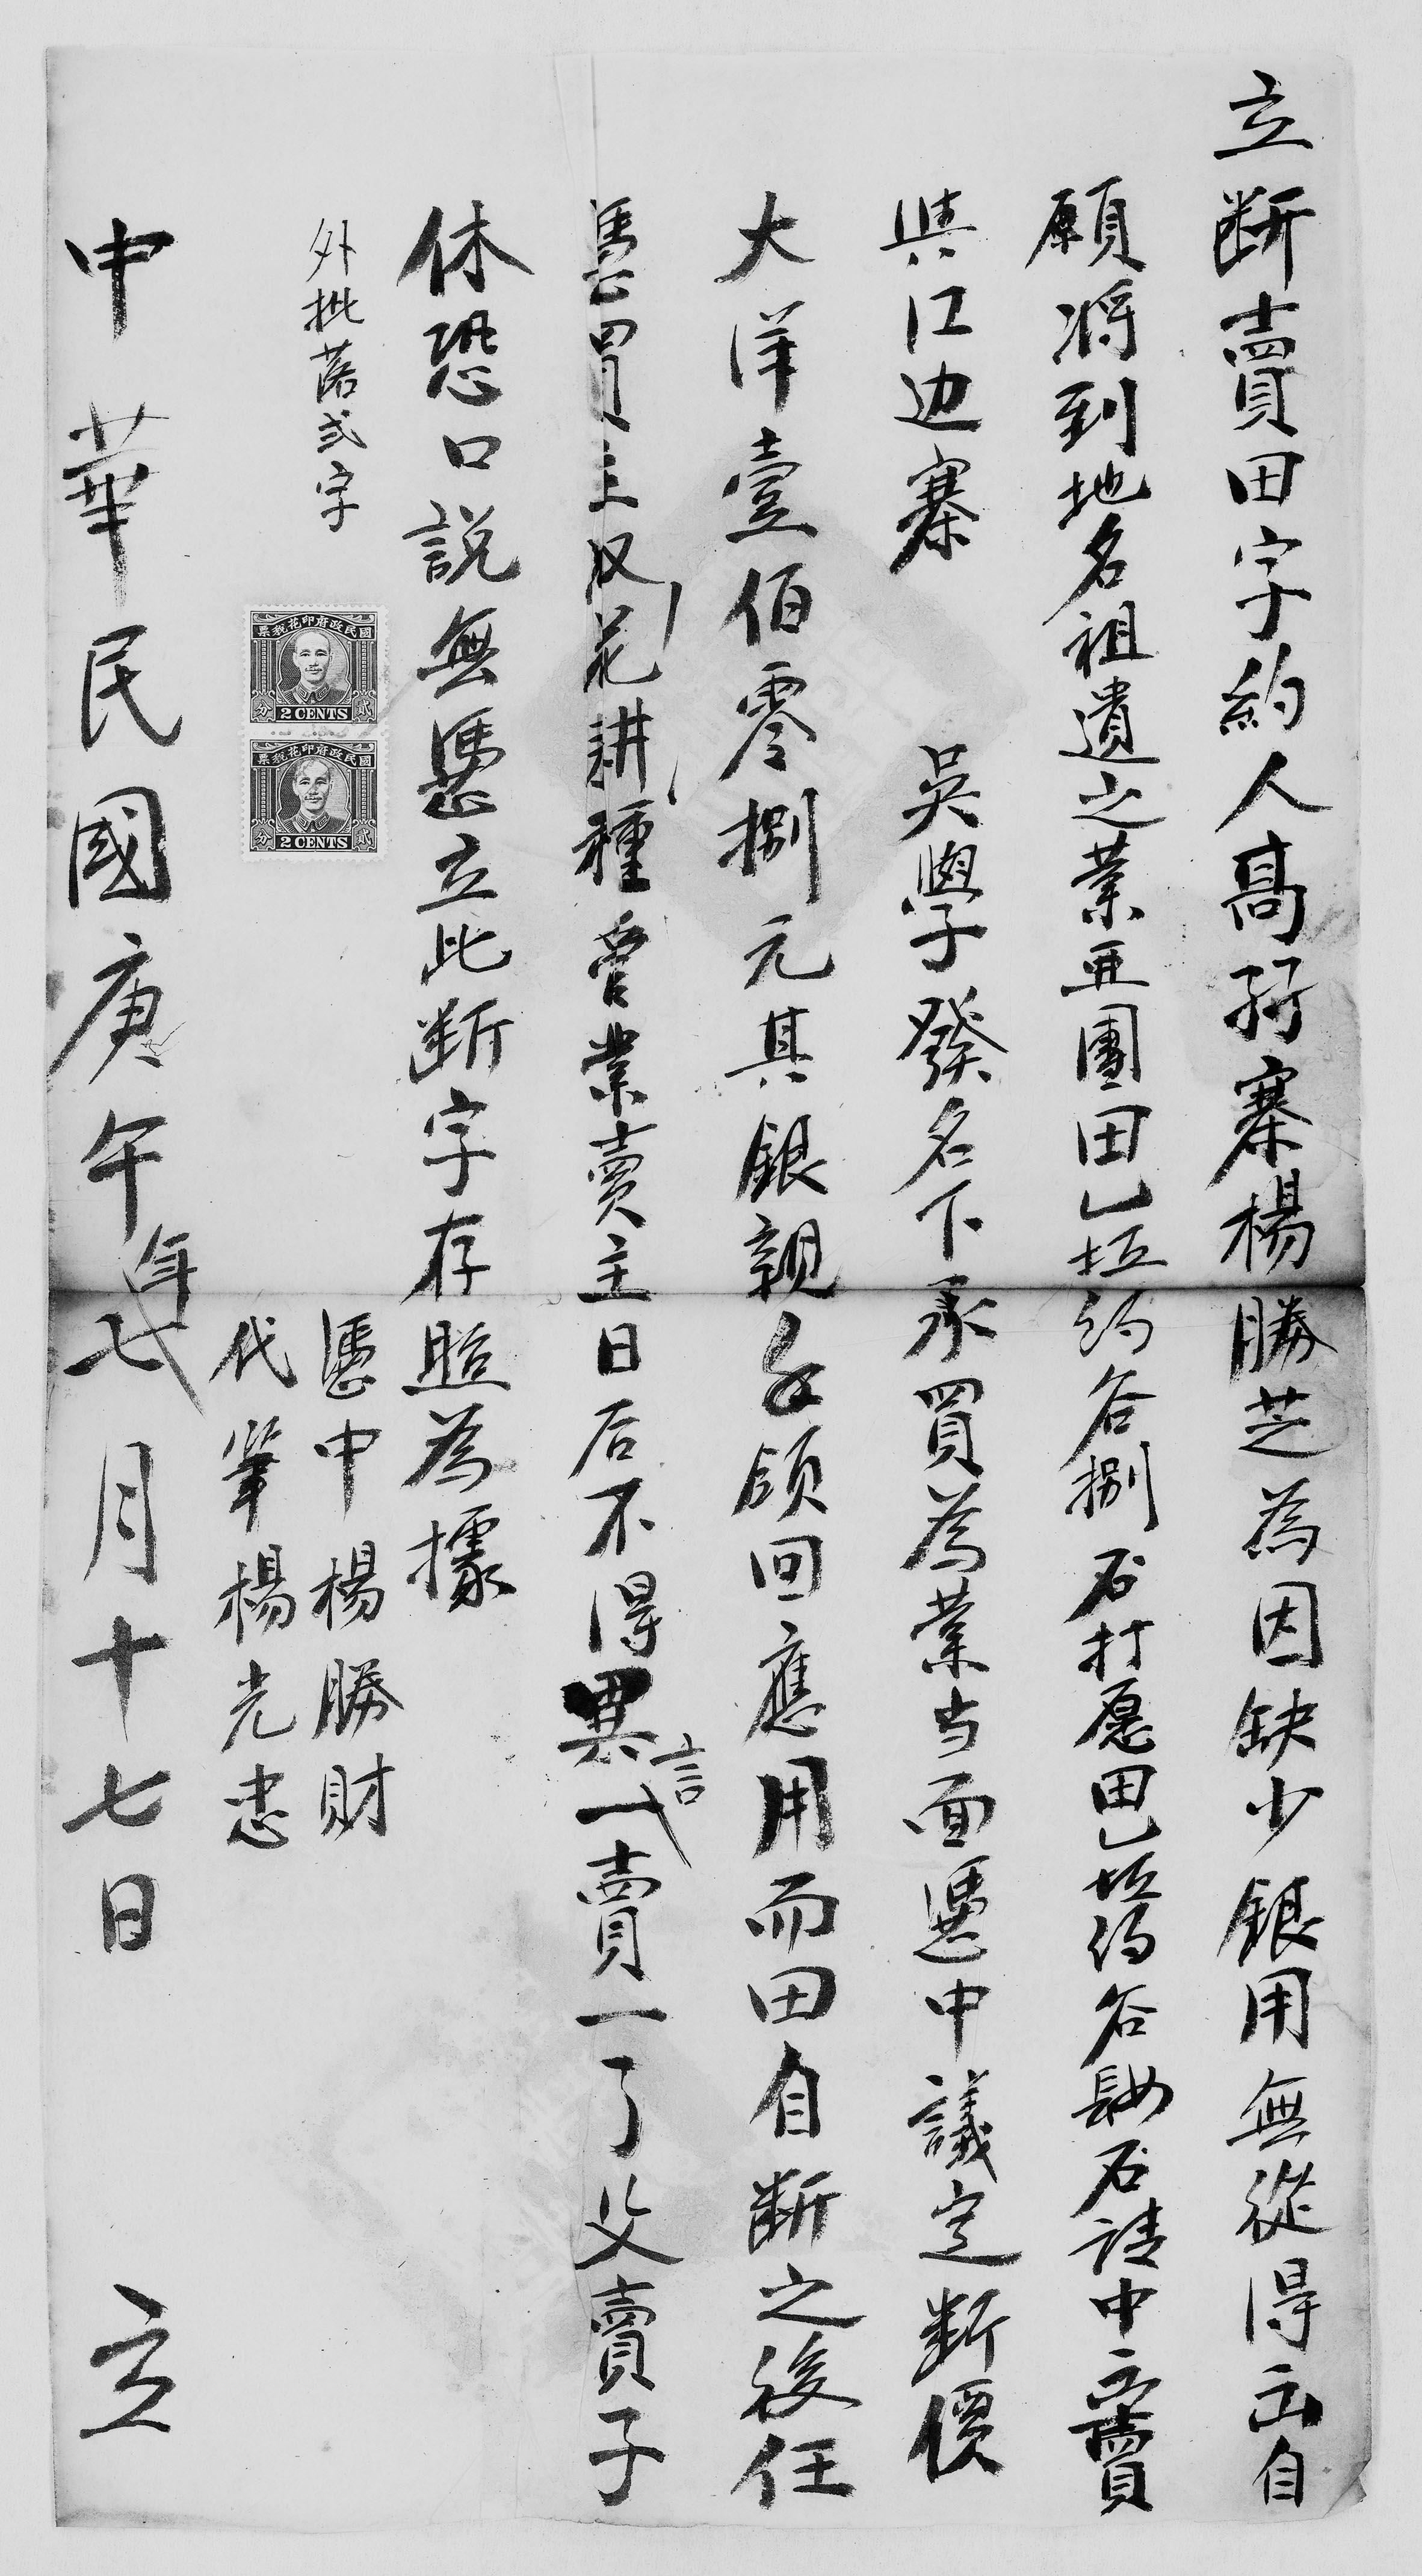 立断賣田字約人高孖寨楊勝芝為因缺少銀用無從得出自
願将到地名祖遺之業亜團田乚坵約谷捌石打愿田乚坵约谷肆石請中出賣
與江边寨 吳學發名下承買為業当面憑中議定断價
大洋壹佰零捌元其銀親手領回應用而田自断之後任
憑買主收花耕種管業賣主日后不得異言一賣一了父賣子
休恐口説無憑立此断字存照為據
外批落弍字
國民政府印花稅票
貳分
2 CENTS
國民政府印花稅票
貳分
2 CENTS
憑中楊勝財
代筆楊光忠
中華民國庚午年七月十七日 立